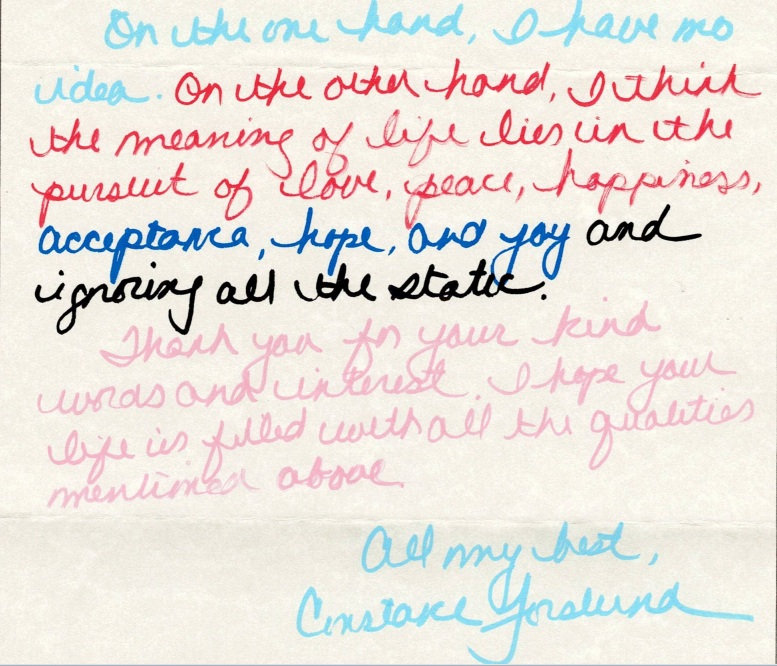 On the one hand, I have no
idea. On the other hand, I think
the meaning of life lies in the
pursuit of love, peace, happiness,
acceptance, hope, and joy and
ignoring all the static.
Thank you for your kind
words and interest. I hope your
life is filled with all the qualities
mentioned above.
All my best,
Constance Forslund